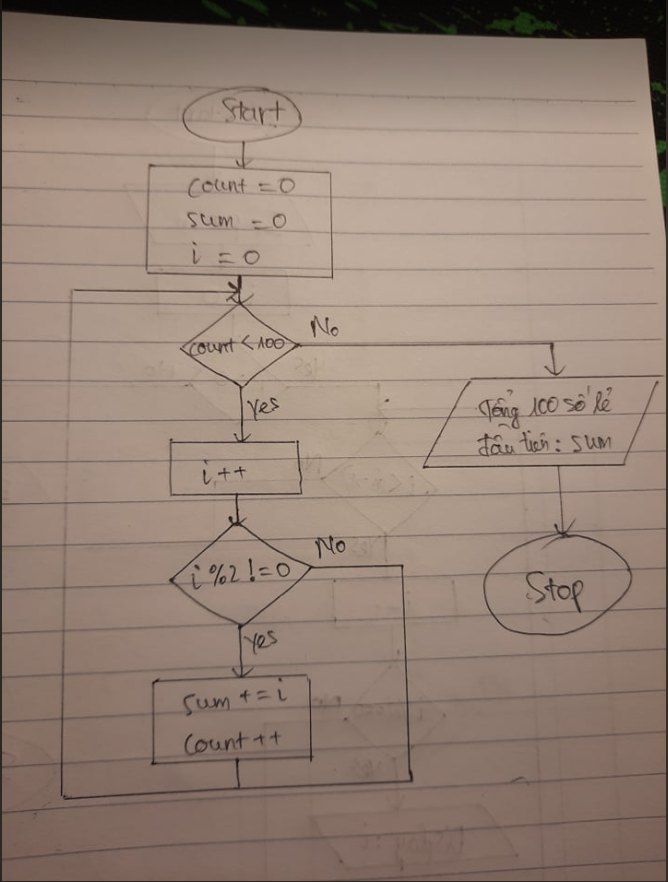 Start
count = 0
sum = 0
i = 0
count < 100
No
yes
Tổng 100 số lẻ
đầu tiên: sum
i++
i %2 != 0
No
Stop
yes
sum += i
count ++